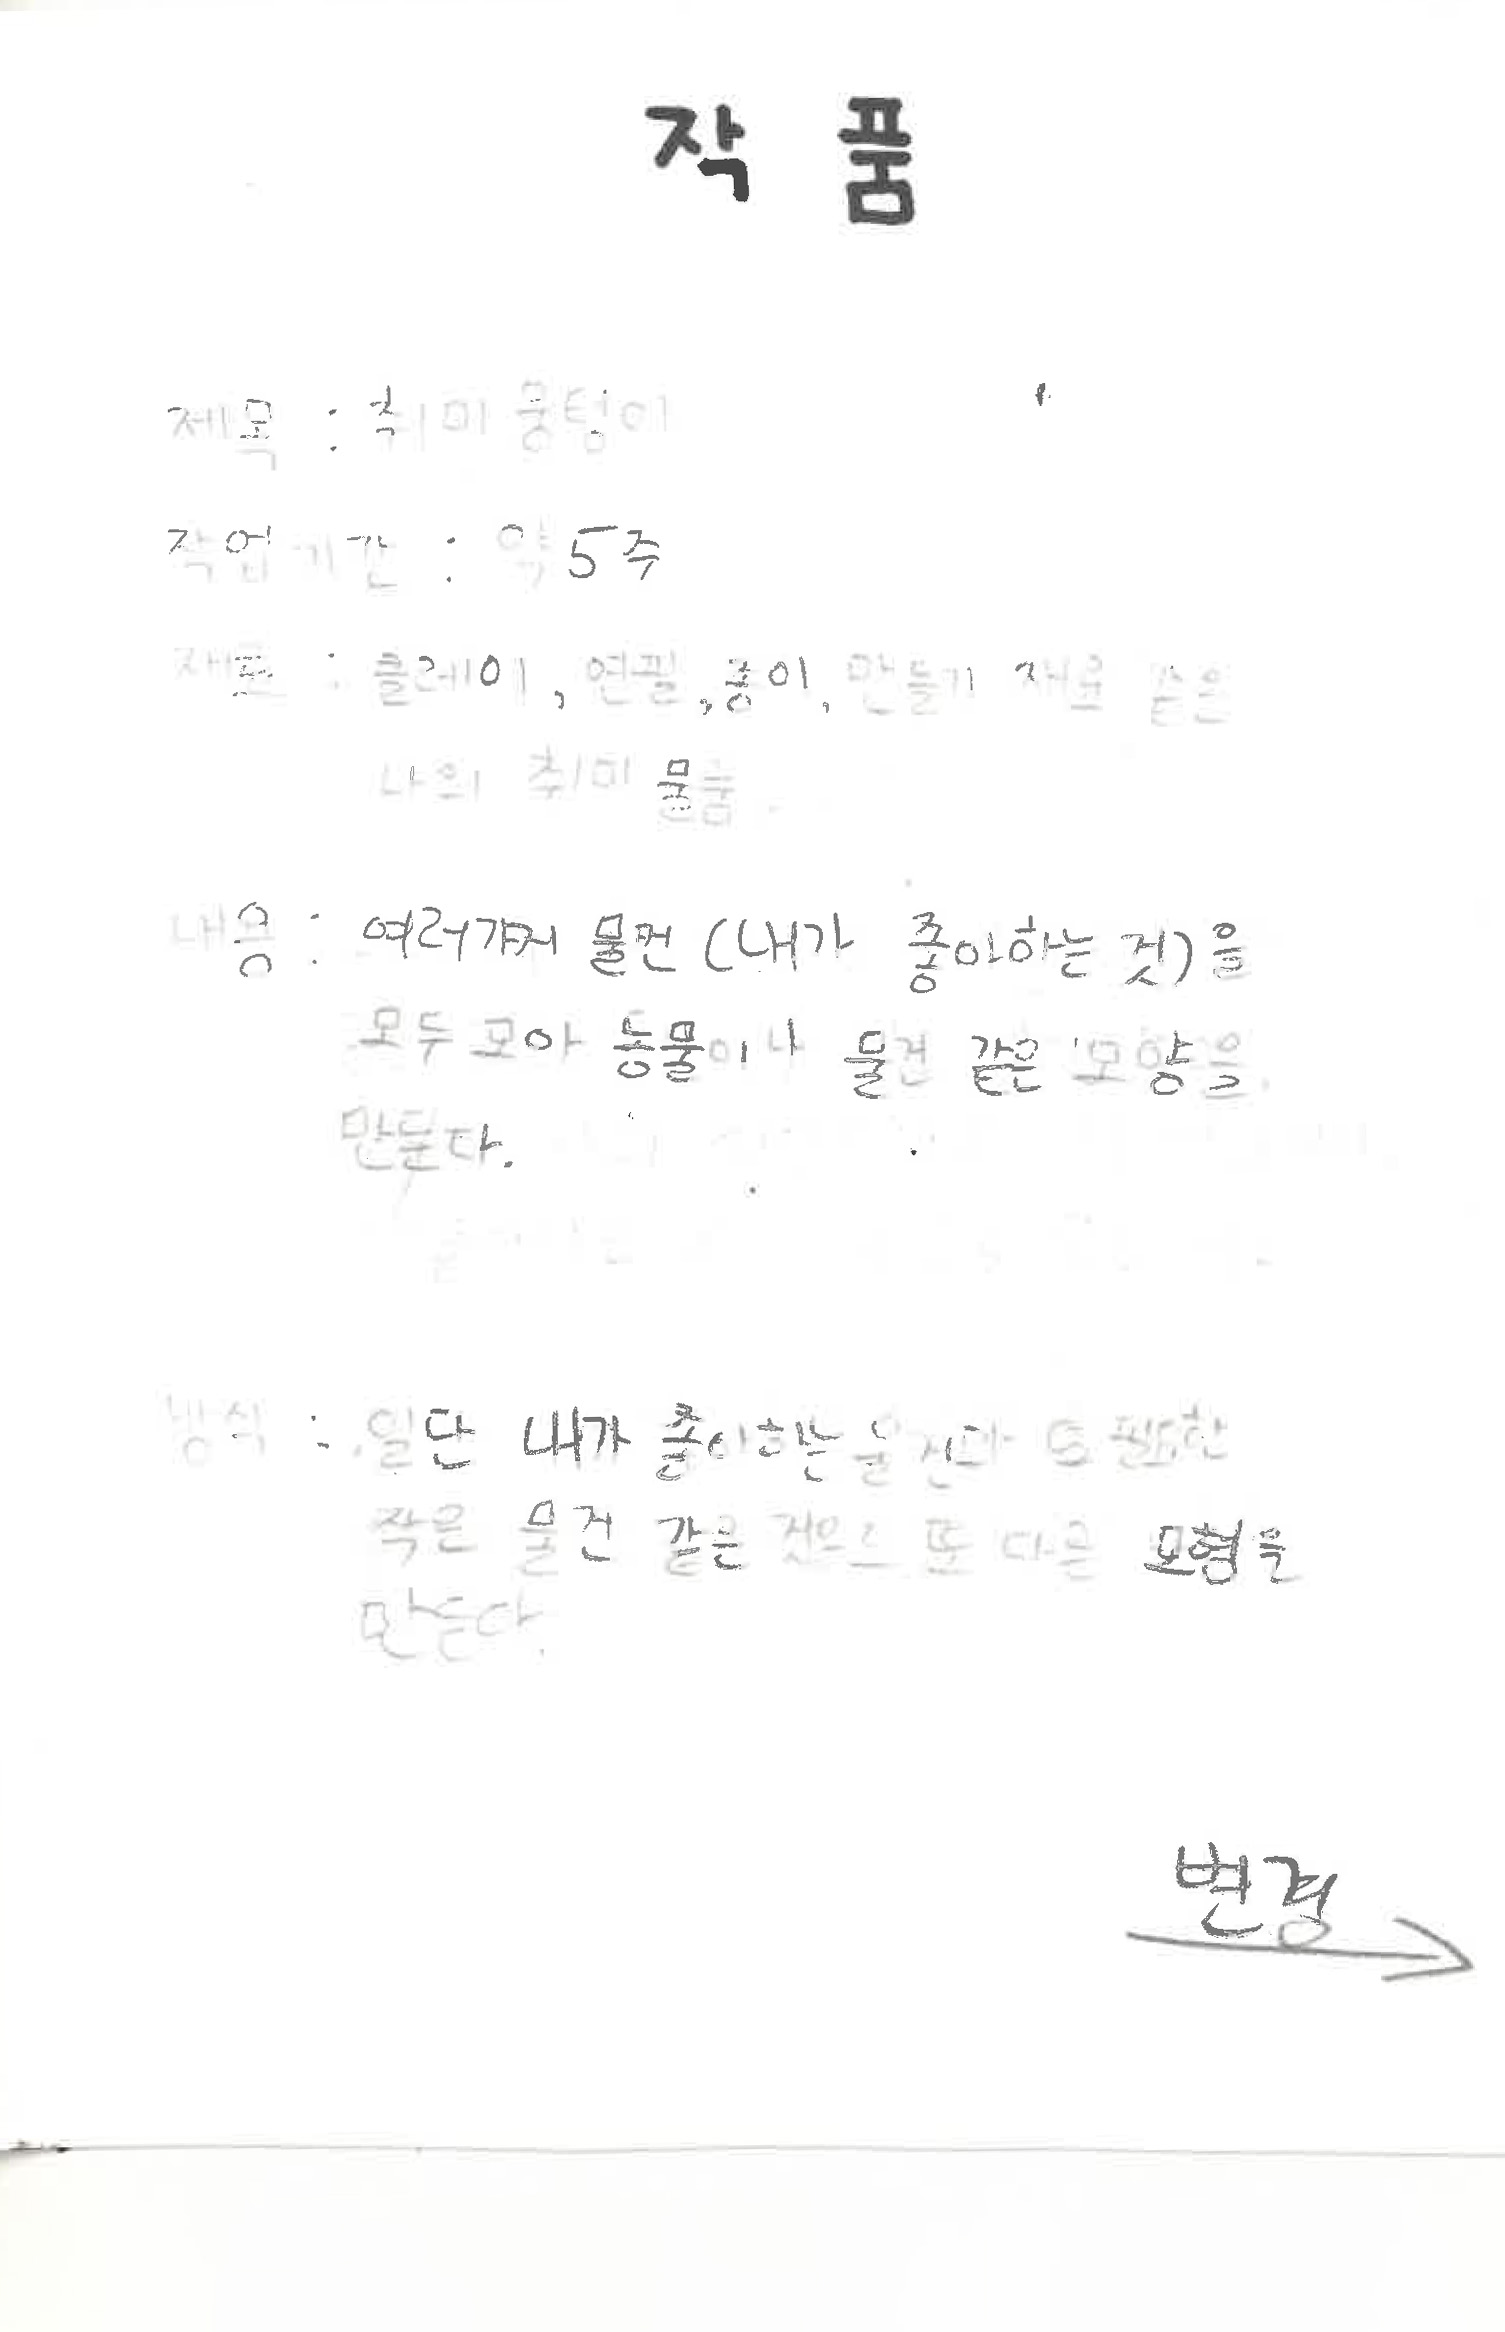 작 품
제목 : 취미 뭉텅이
작업 기간 : 약 5주
재료 : 클레이, 연필, 종이, 만들기 재료 같은
나의 취미 물품.
내용 : 여러가지 물건 (내가 좋아하는 것)을
모두 모아 동물이나 물건 같은 모양을
만든다.
방식 : 일단 내가 좋아하는 물건과 또 필요한
작은 물건 같은 것으로 또 다른 모형을
만든다.
변경